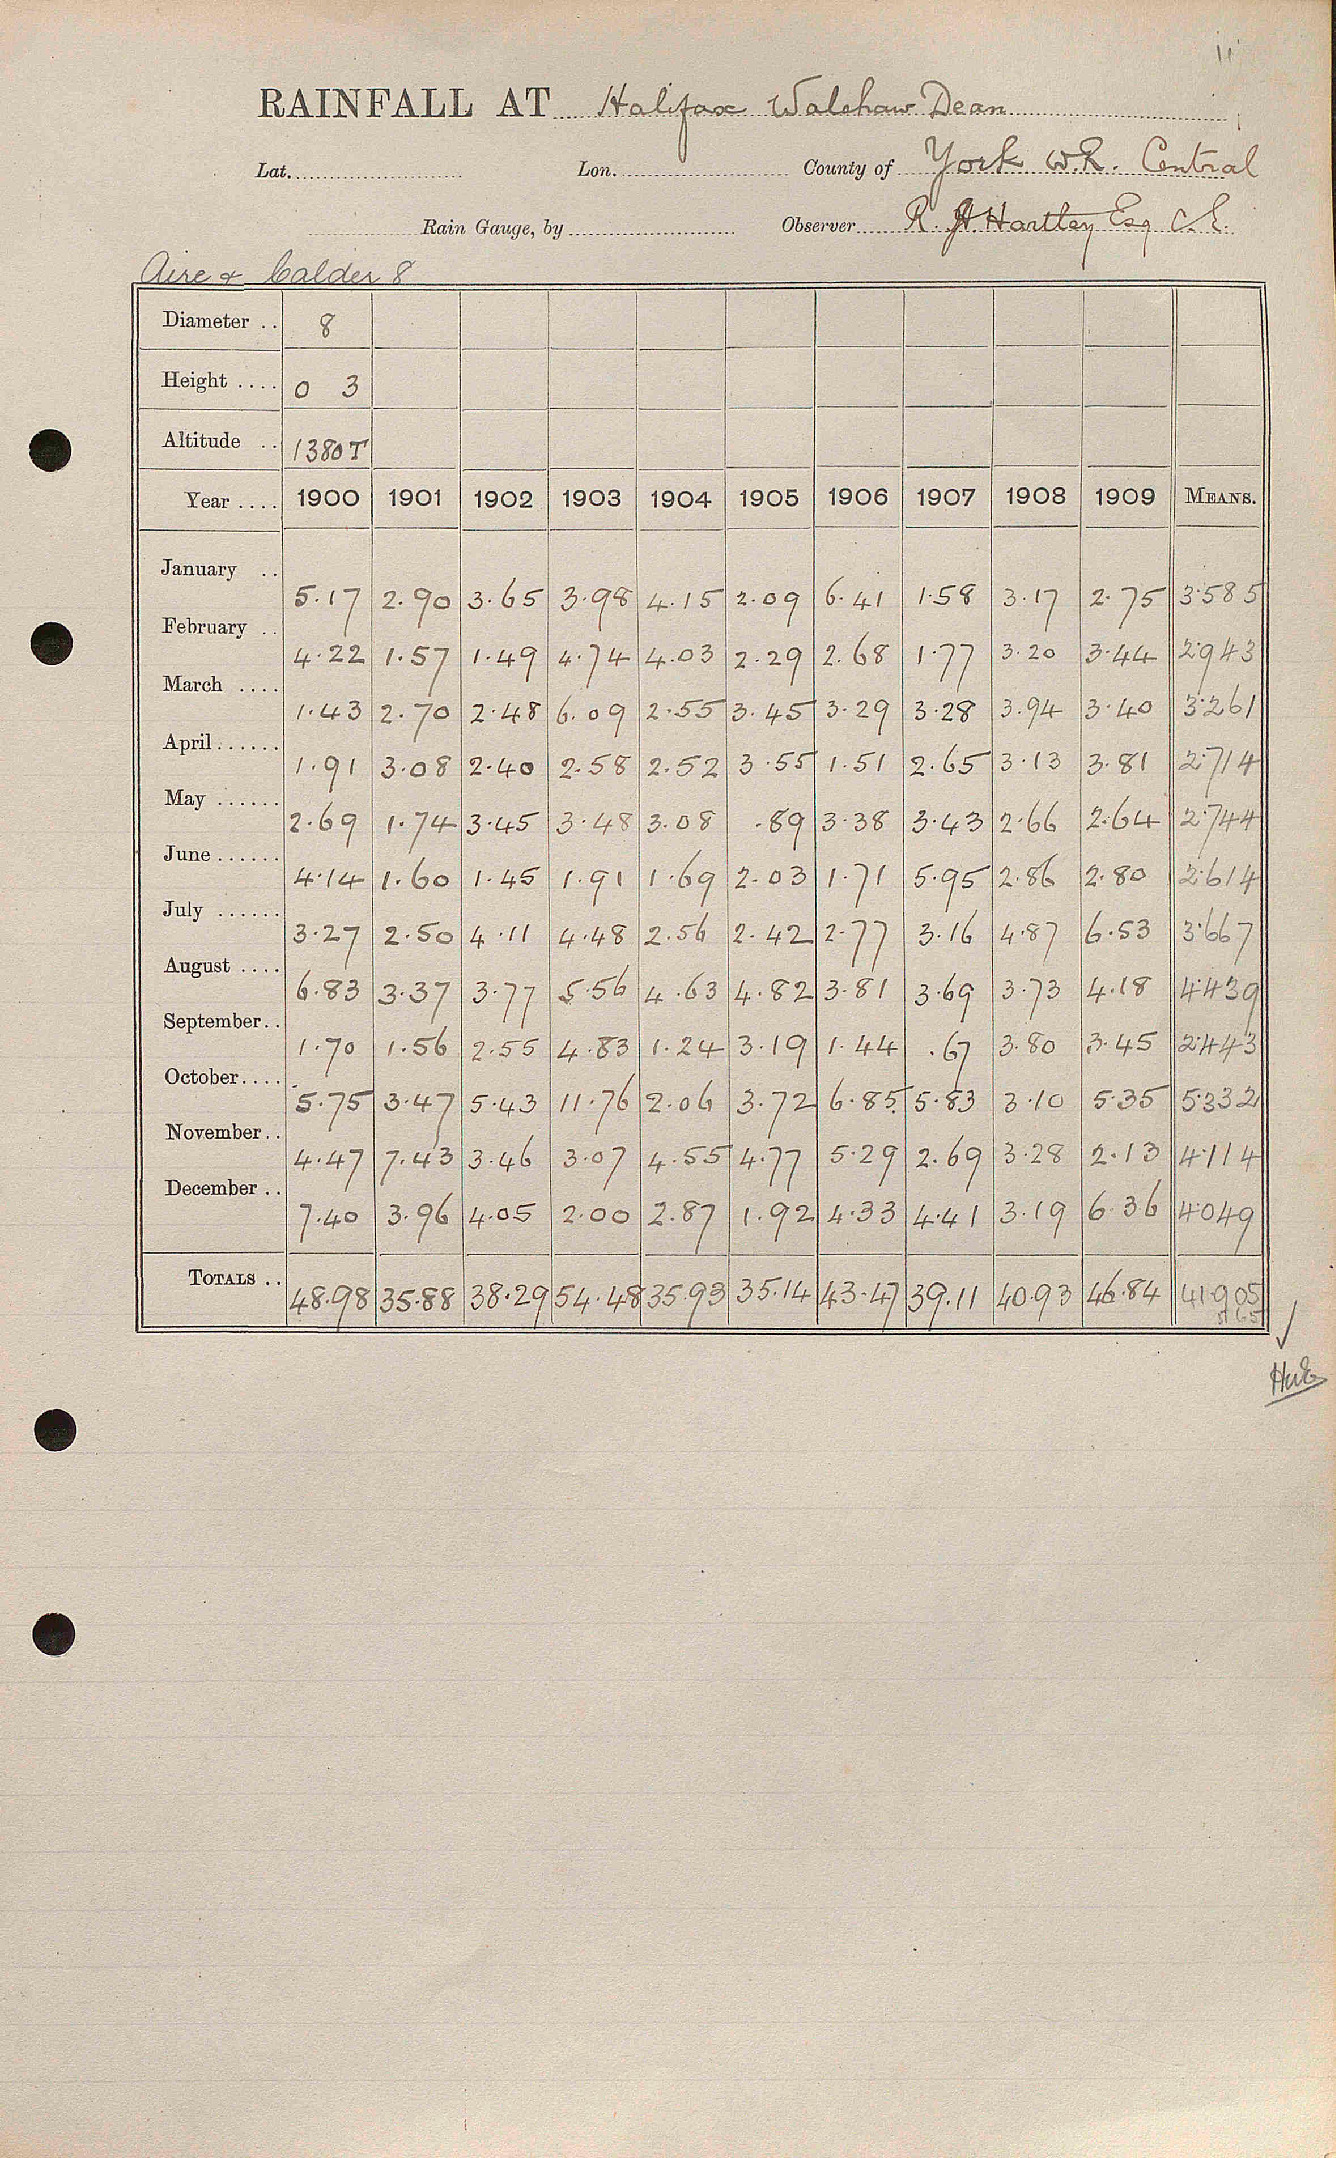 11
RAINFALL AT Halifax Walshaw Dean
Lat. Lon. County of York W.R. Central
Rain Gauge, by Observer R. H. Hartley Esq C.E.
Aire & Calder 8
Diameter .. 8
Height .... 0 3
Altitude .. 1380 T
Year .... 1900 1901 1902 1903 1904 1905 1906 1907 1908 1909 MEANS.
January .. 5.17 2.90 3.65 3.98 4.15 2.09 6.41 1.58 3.17 2.75 3.585
February .. 4.22 1.57 1.49 4.74 4.03 2.29 2.68 1.77 3.20 3.44 2.943
March .... 1.43 2.70 2.48 6.09 2.55 3.45 3.29 3.28 3.94 3.40 3.261
April ...... 1.91 3.08 2.40 2.58 2.52 3.55 1.51 2.65 3.13 3.81 2.714
May ...... 2.69 1.74 3.45 3.48 3.08 .89 3.38 3.43 2.66 2.64 2.744
June ...... 4.14 1.60 1.45 1.91 1.69 2.03 1.71 5.95 2.86 2.80 2.614
July ...... 3.27 2.50 4.11 4.48 2.56 2.42 2.77 3.16 4.87 6.53 3.667
August .... 6.83 3.37 3.77 5.56 4.63 4.82 3.81 3.69 3.73 4.18 4.439
September .. 1.70 1.56 2.55 4.83 1.24 3.19 1.44 .67 3.80 3.45 2.443
October .... 5.75 3.47 5.43 11.76 2.06 3.72 6.85 5.83 3.10 5.35 5.332
November .. 4.47 7.43 3.46 3.07 4.55 4.77 5.29 2.69 3.28 2.13 4.114
December .. 7.40 3.96 4.05 2.00 2.87 1.92 4.33 4.41 3.19 6.36 4.049
TOTALS .. 48.98 35.88 38.29 54.48 35.93 35.14 43.47 39.11 40.93 46.84 41.905